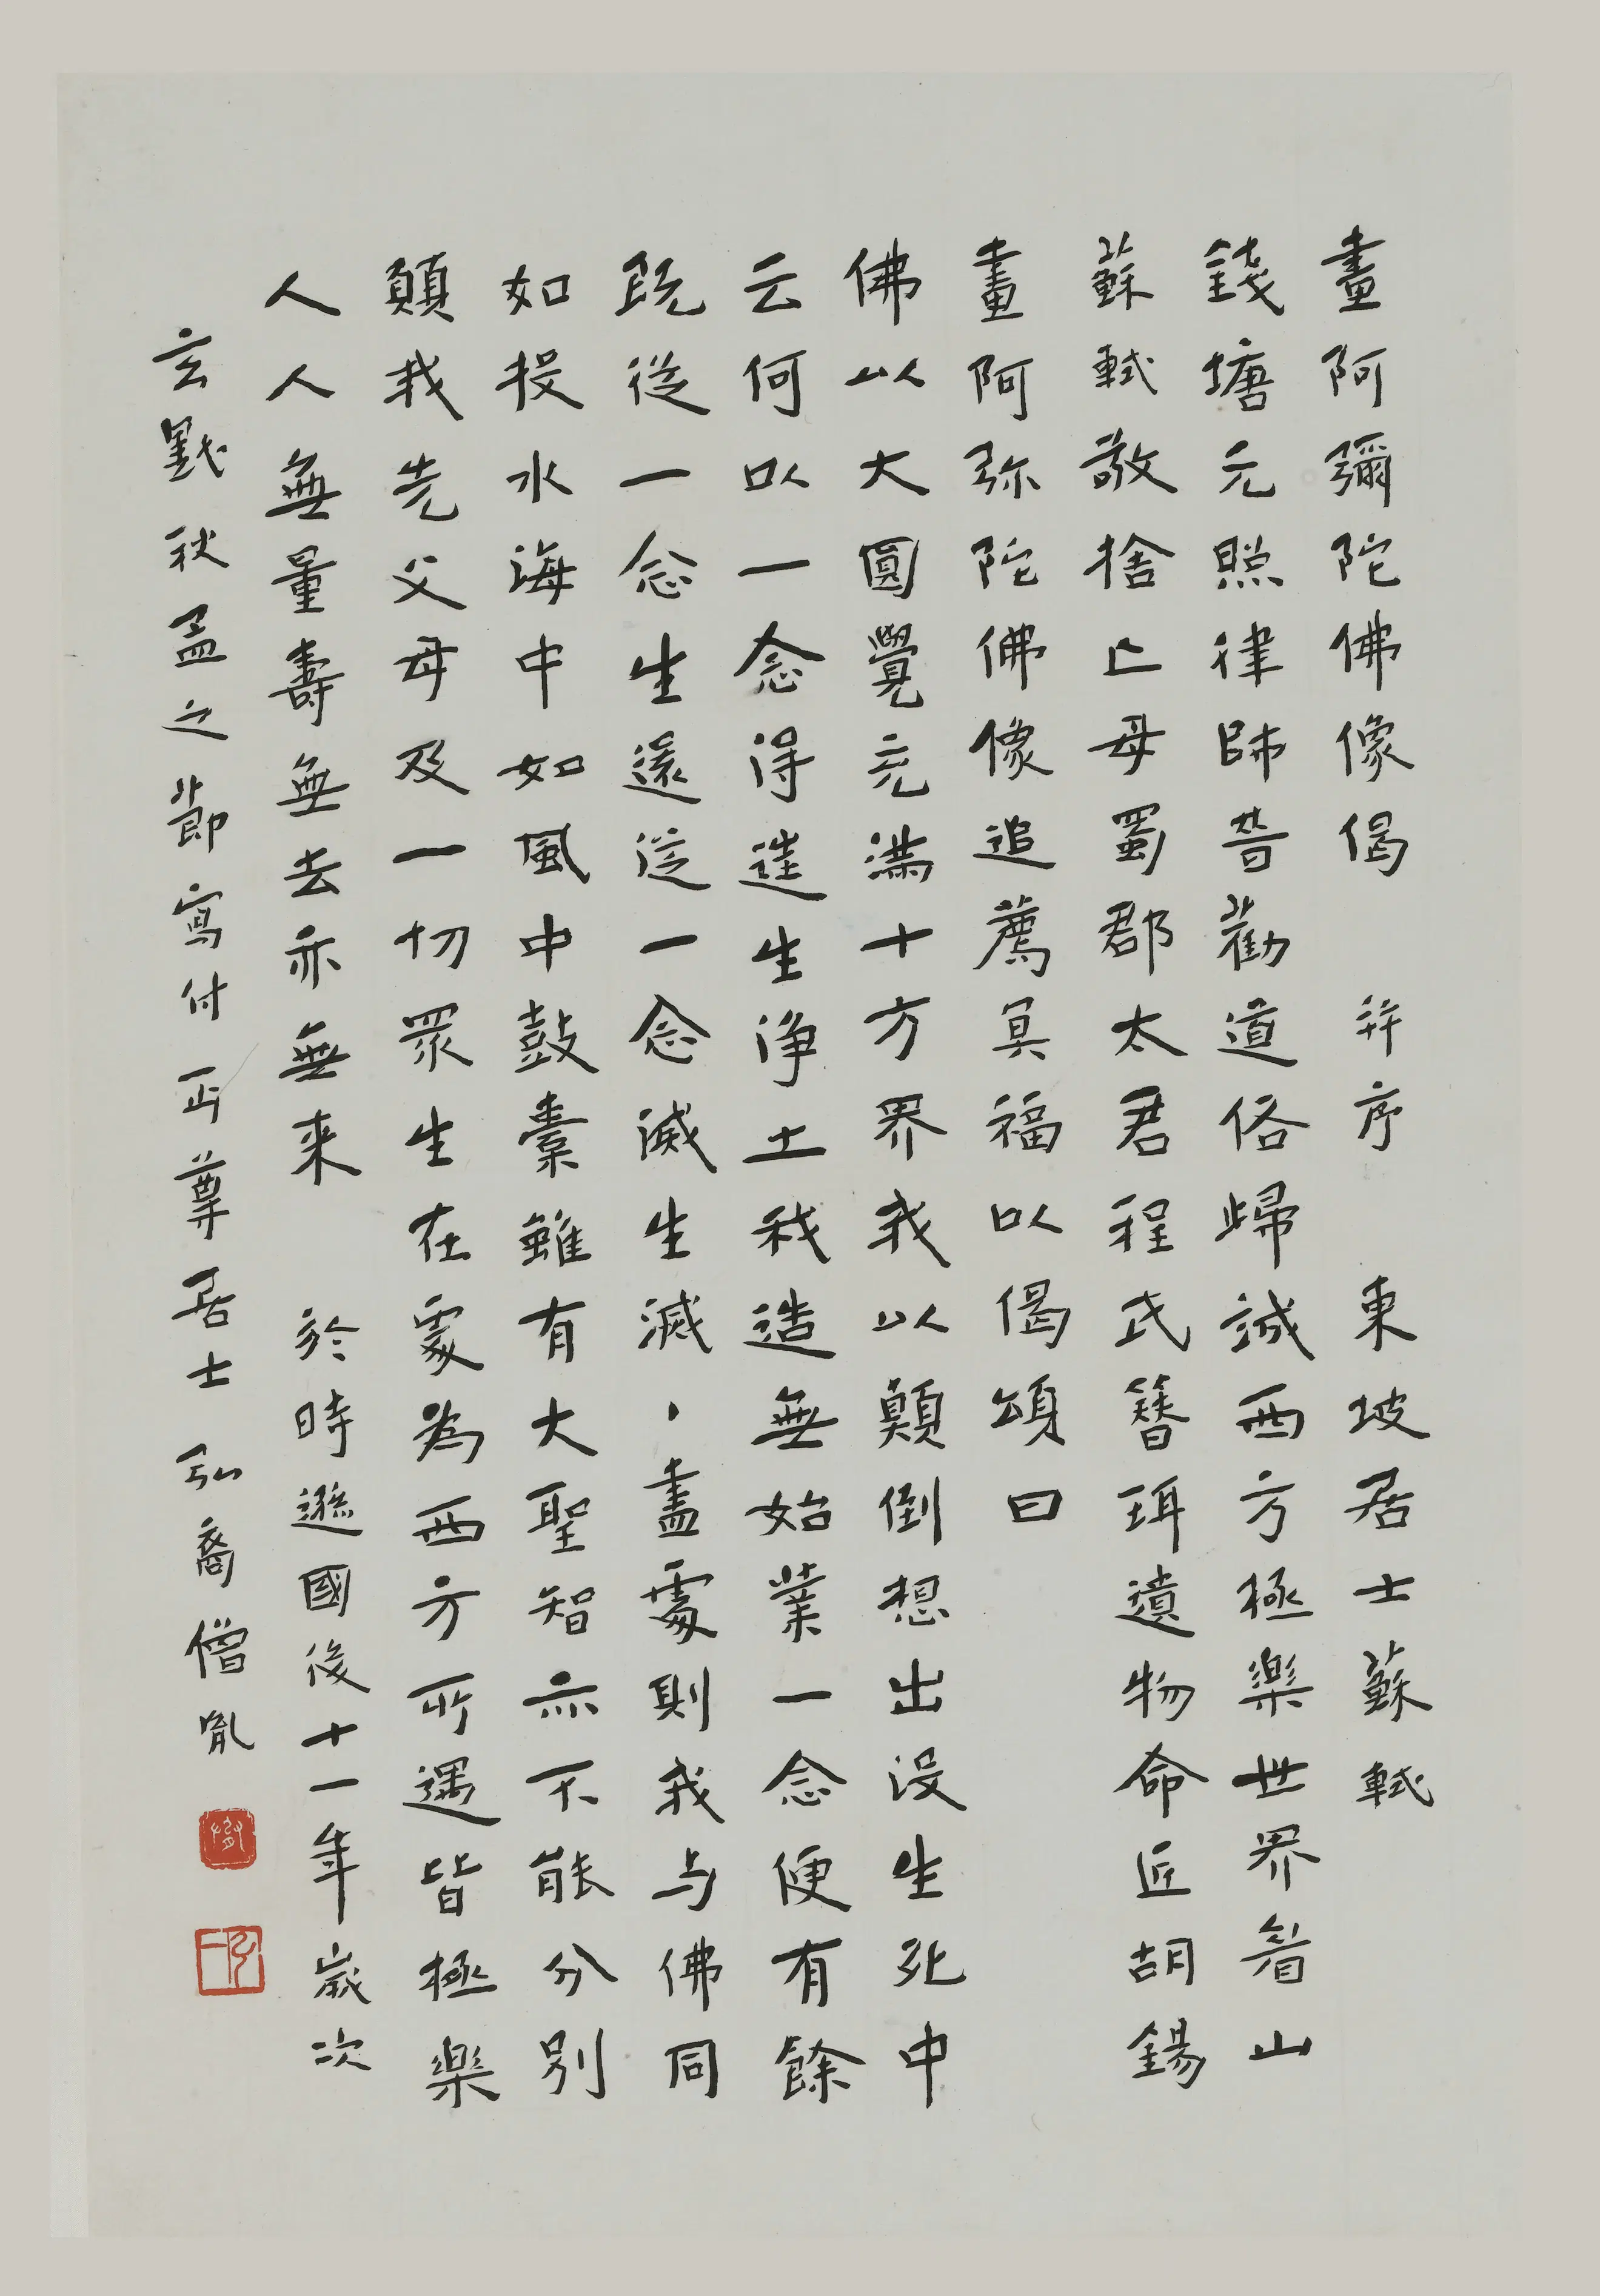 畫阿彌陀佛像偈 并序 東坡居士蘇軾
錢塘元照律師普勸道俗歸誠西方極樂世界眉山
蘇軾敬捨亡母蜀郡太君程氏簪珥遺物命匠胡錫
畫阿弥陀佛像追薦冥福以偈頌曰
佛以大圓覺充滿十方界我以顛倒想出沒生死中
云何以一念得逹生淨土我造無始業一念便有餘
既從一念生還從一念滅生滅、盡處則我与佛同
如投水海中如風中鼓橐雖有大聖智亦不能分別
願我先父母及一切眾生在處為西方所遇皆極樂
人人無量壽無去亦無来 於時遜國後十一年歲次
玄黓秋孟之節寫付丏尊居士 弘裔僧胤